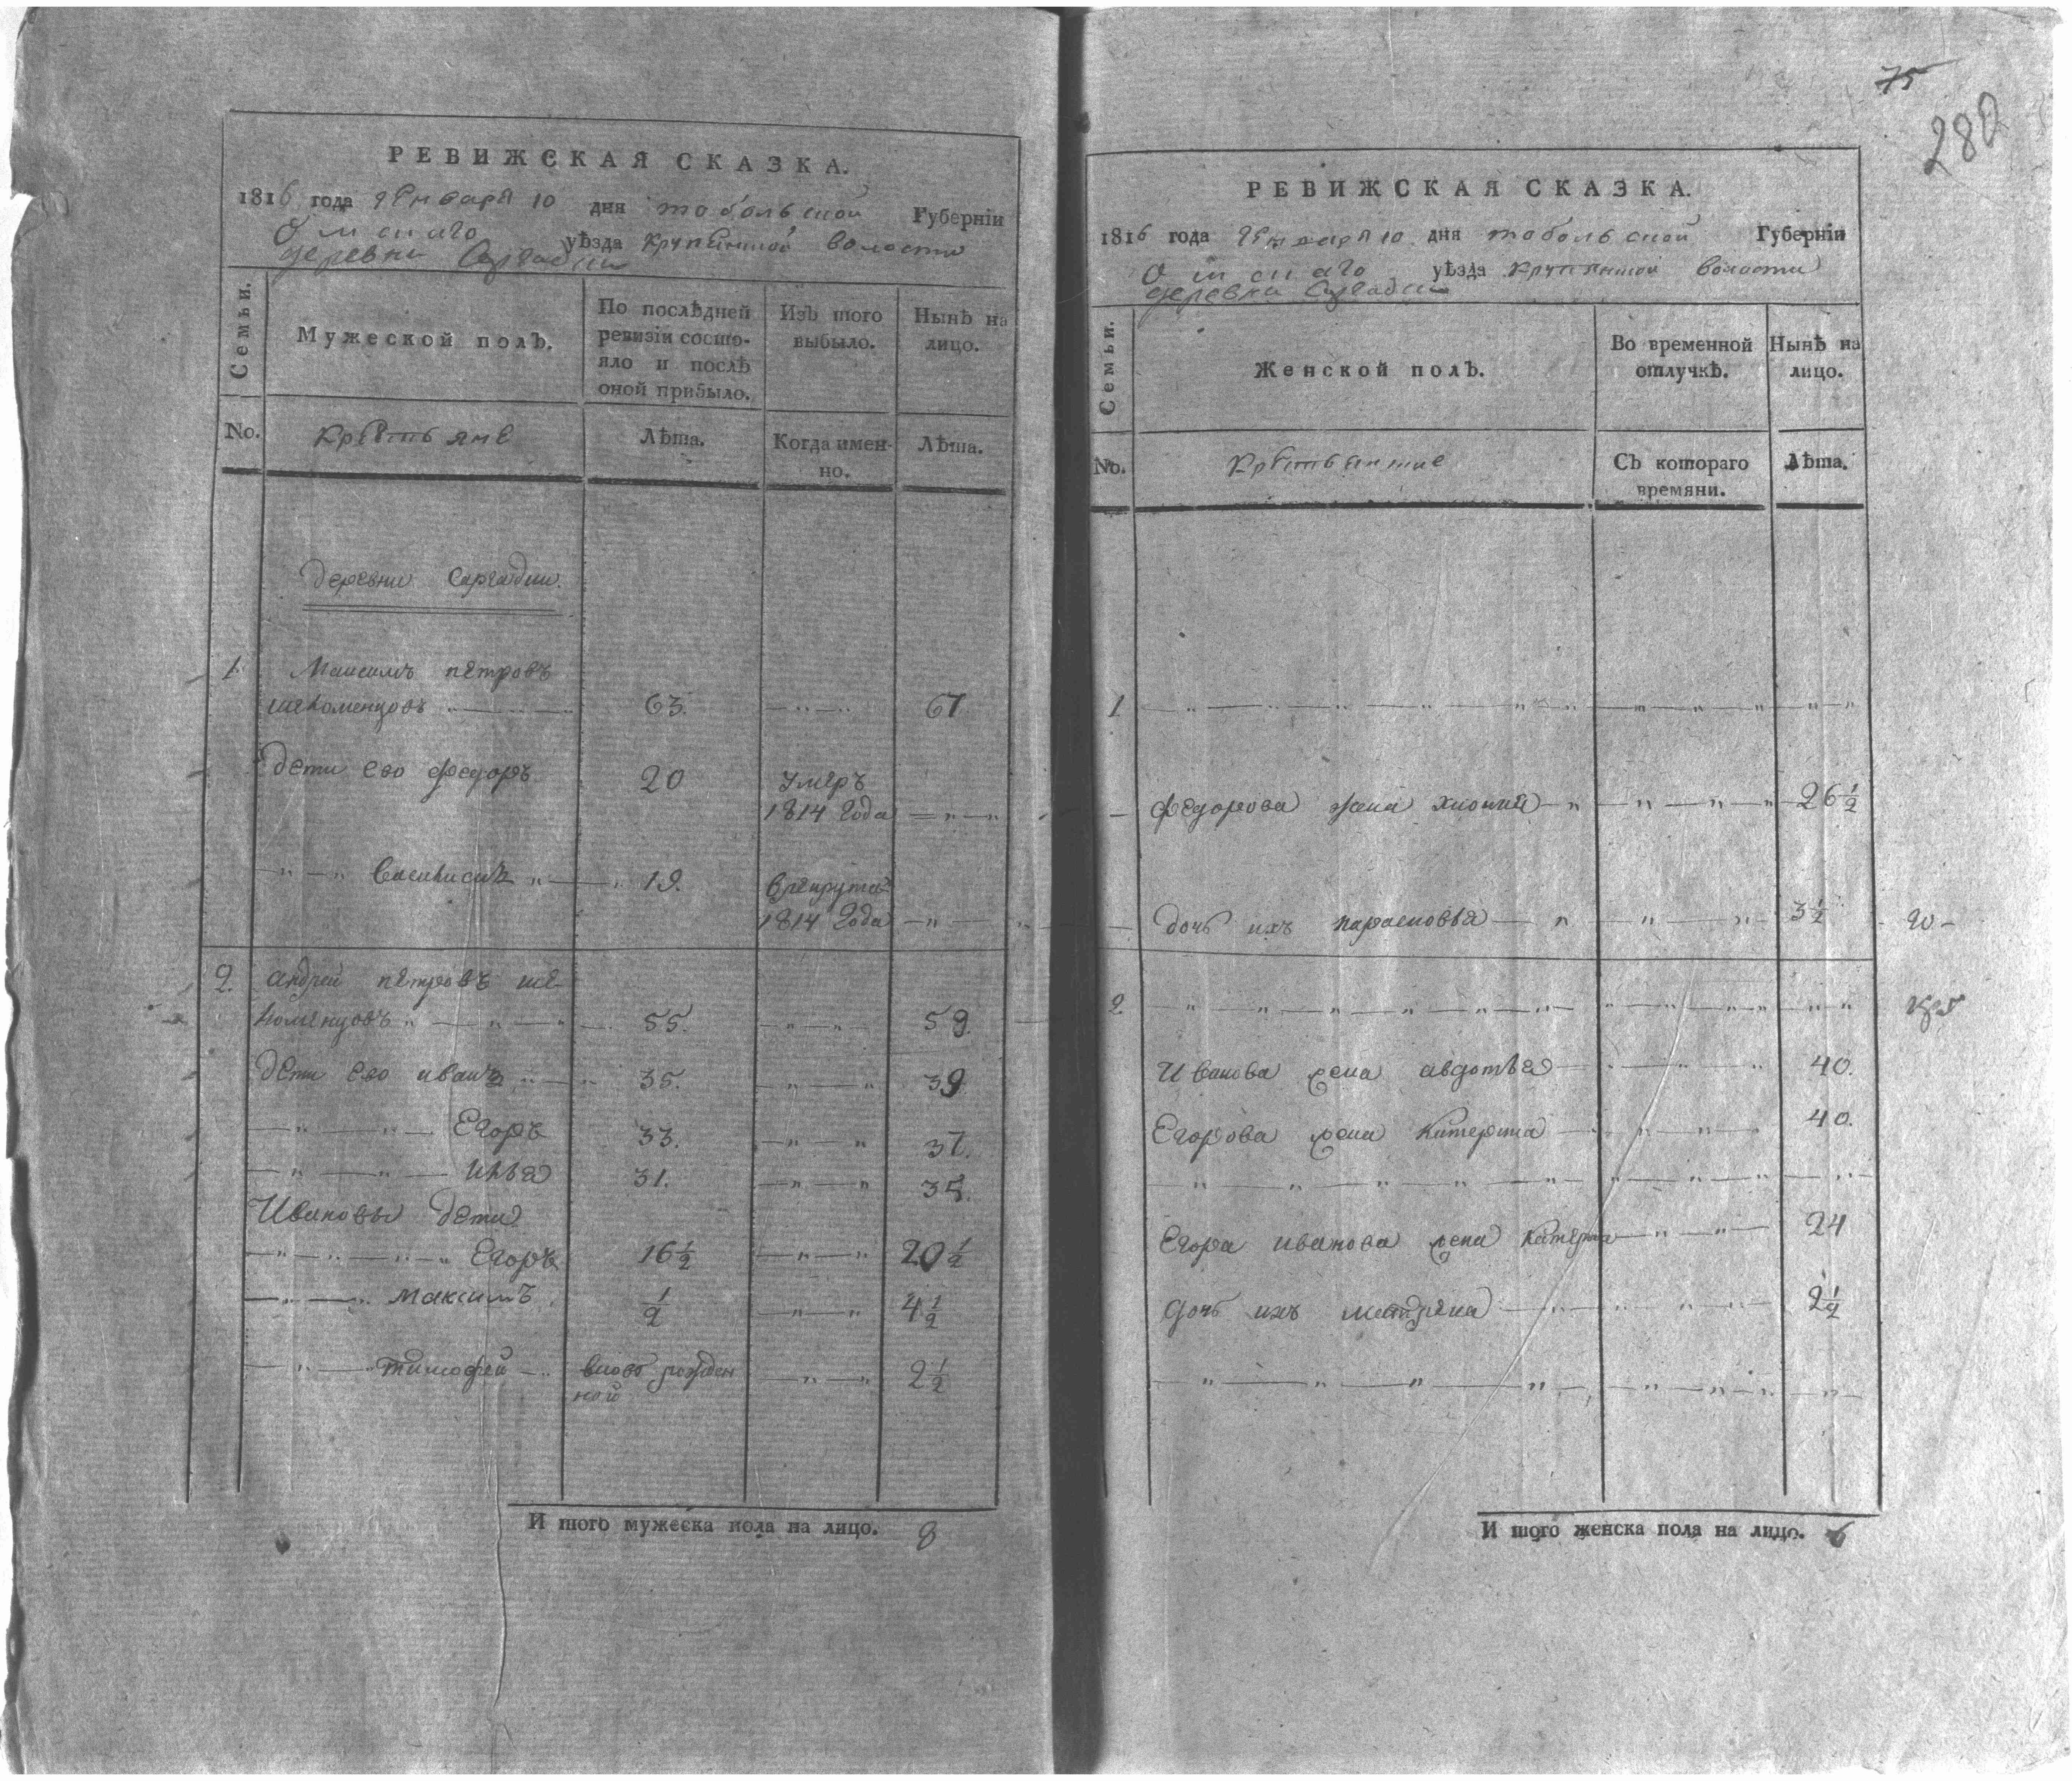 РЕВИЖСКАЯ СКАЗКА.
1816 года Января 10 дня тобольской Губерніи
Омскаго уѣзда крупянской волости
деревни
Семьи.
Мужеской полъ.
По послѣдней ревизіи состояло и послѣ оной прибыло.
Изъ того выбыло.
Нынѣ на лицо.
No.
крестьяне
Лѣта.
Когда именно.
Лѣта.
деревни Саргадки.
1. Максимъ петровъ
шекоменцовъ 63. 67
дети его федоръ 20 умеръ
1814 года
Василисй 19. в рекруты
1814 года
2. андрей петровъ ше-
коменцовъ 55. 59.
дети его иванъ 35. 39
Егоръ 33. 37.
илья 31. 35.
Ивановы дети
Егоръ 16 1/2 20 1/2
максимъ 1/2 4 1/2
тимофей вновь рожден 2 1/2
ной
И того мужеска пола на лицо. 8
75
280
РЕВИЖСКАЯ СКАЗКА.
1816 года Января 10 дня тобольской Губерніи
Омскаго уѣзда крупянской волости
деревни
Семьи.
Женской полъ.
Во временной отлучкѣ.
Нынѣ на лицо.
No.
Съ котораго времяни.
Лѣта.
1
федорова жена хиония 26 1/2
дочь ихъ парасковья 3 1/2
2
Иванова жена авдотья 40.
Егорова жена катерина 40.
Егора иванова жена катерина 24
дочь ихъ матрена 2 1/2
И того женска пола на лицо. 6